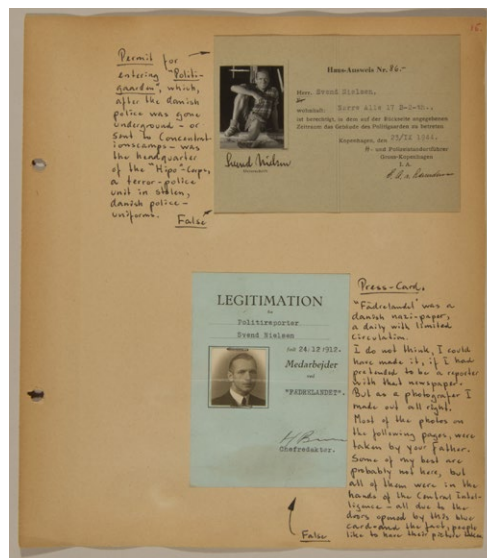 15.
Permit for
entering "Politi-
gaarden", which,
after the danish
police was gone
underground - or
sent to Concentrat-
ionscamps - was
the headquarter
of the "Hipo"-Corps,
a terror-police
unit in stolen,
danish police-
uniforms.
False
Haus-Ausweis Nr. 86.-
Herr Svend Nielsen,
wohnhaft:
ist berechtigt, in dem auf der Rückseite angegebenen
Zeitraum das Gebäude des Politigaarden zu betreten.
Kopenhagen, den 25/XI 1944.
und Polizeistandortführer
Gross-Kopenhagen
I. A.
Svend Nielsen
LEGITIMATION
for
Politireporter
Svend Nielsen
født 24:12:1912.
Medarbejder
ved
"FÆDRELANDET".
Chefredaktør.
False
Press-Card.
"Fädrelandet" was a
danish nazi-paper,
a daily with limited
circulation.
I do not think, I could
have made it, if I had
pretended to be a reporter
with that newspaper.
But as a photografer I
made out all right.
Most of the photos on
the following pages, were
taken by your father.
Some of my best are
probably not here, but
all of them were in the
hands of the Central Intel-
ligence - all due to the
doors opened by this blue
card and the fact, people
like to have their picture taken